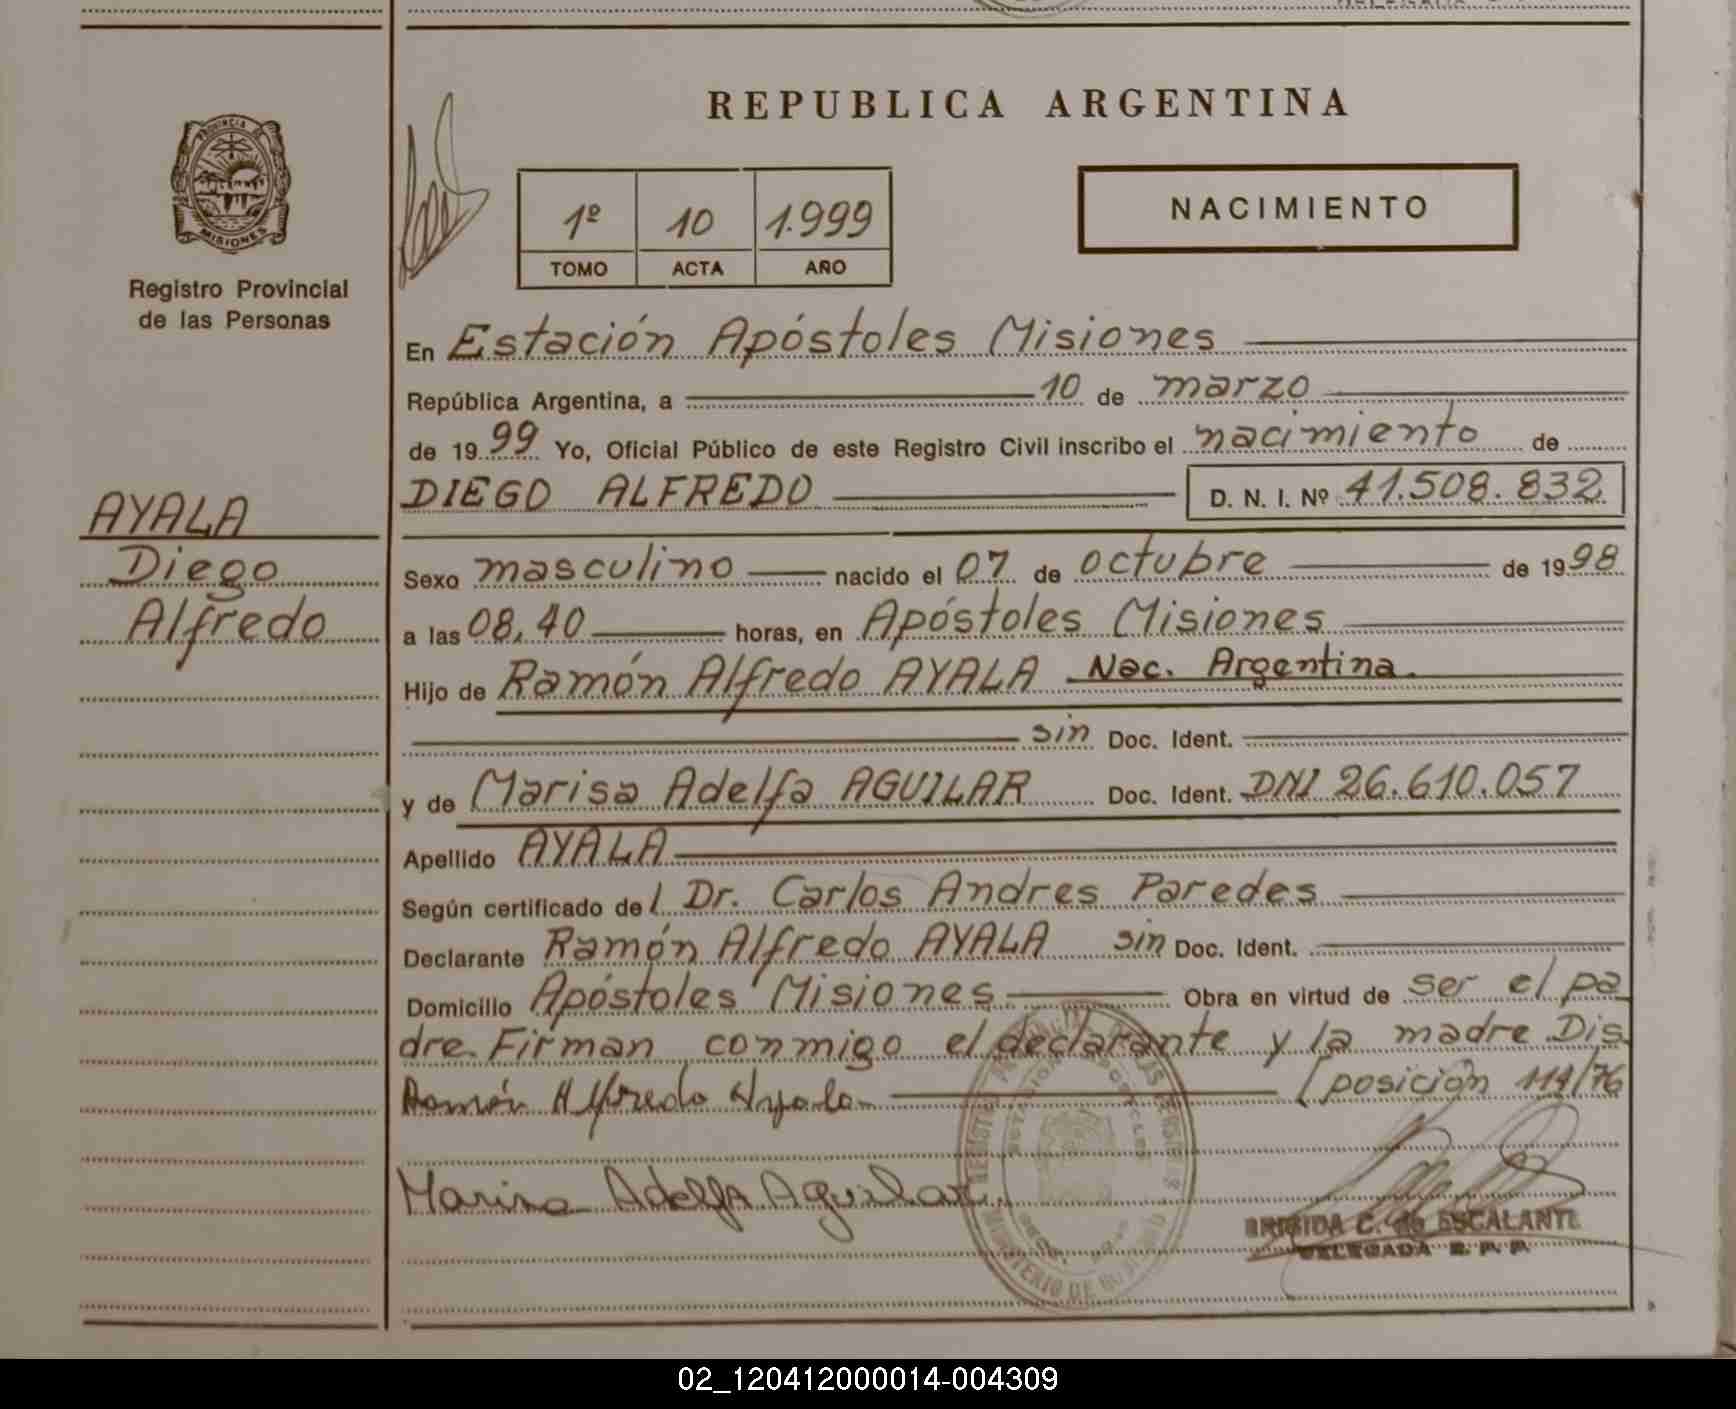 REPUBLICA ARGENTINA
PROVINCIA DE
MISIONES
Registro Provincial
de las Personas
1º 10 1.999
TOMO ACTA AÑO
NACIMIENTO
En Estación Apóstoles Misiones
República Argentina, a 10 de marzo
de 1999 Yo, Oficial Público de este Registro Civil inscribo el nacimiento de
DIEGO ALFREDO D. N. I. Nº 41.508.832
AYALA
Diego
Alfredo
Sexo masculino nacido el 07 de octubre de 1998
a las 08,40 horas, en Apóstoles Misiones
Hijo de Ramón Alfredo AYALA Nac. Argentina.
sin Doc. Ident.
y de Marisa Adelfa AGUILAR Doc. Ident. DNI 26.610.057
Apellido AYALA
Según certificado del Dr. Carlos Andres Paredes
Declarante Ramón Alfredo AYALA sin Doc. Ident.
Domicilio Apóstoles Misiones Obra en virtud de ser el pa
dre. Firman conmigo el declarante y la madre Dis
posición 114/76
Ramón Alfredo Ayala
Marisa Adelfa Aguilar
BRIGIDA C. de ESCALANTE
DELEGADA R. P. P.
02_120412000014-004309